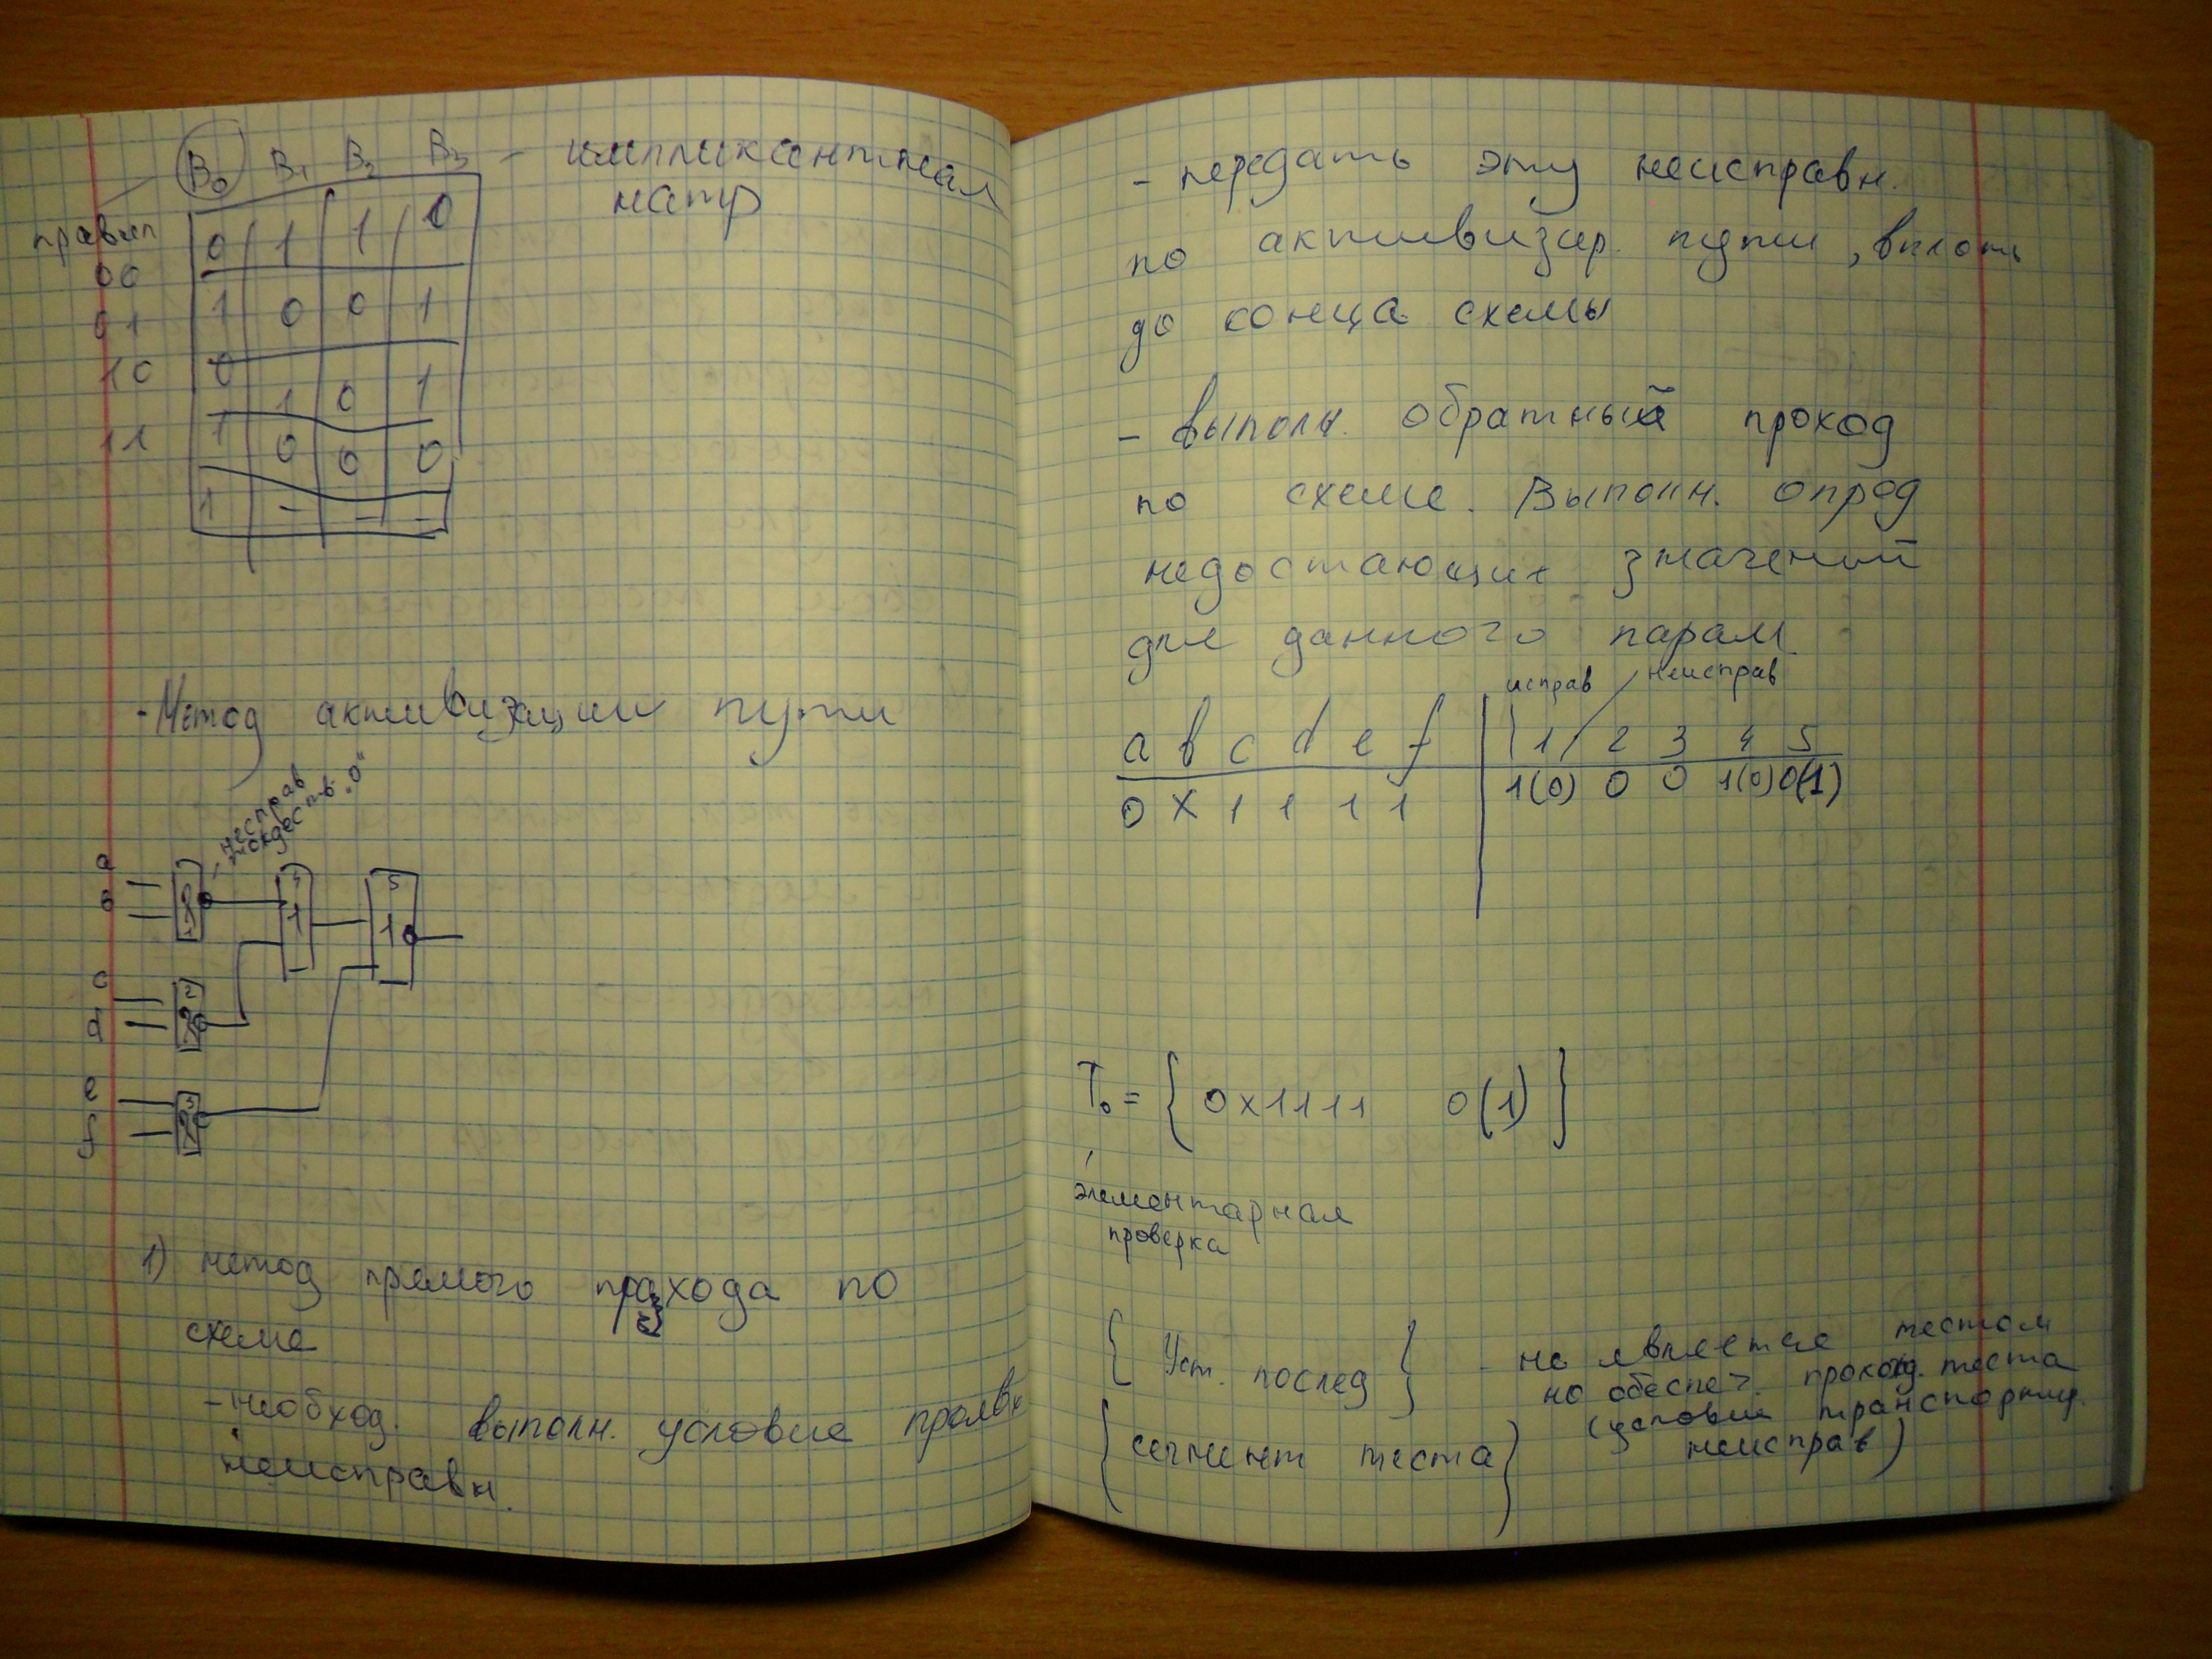 B0 B1 B2 B3 - импликантная
матр
правил
0 1 1 0
00
1 0 0 1
01
10 0 1 0 1
11 1 0 0 0
1 - - -
- Метод активизации пути
несправ
тождеств. „0"
a
в
4
1
5
1
c
d
2
e
f
3
1) метод прямого прохода по
схеме
- необход. выполн. условие проявл
неисправн.
- передать эту неисправн.
по активизир. пути, вплоть
до конца схемы
- выполн. обратный проход
по схеме. Выполн. опред
недостающих значений
для данного парам
исправ / неисправ
a b c d e f | 1 2 3 4 5
0 x 1 1 1 1 | 1(0) 0 0 1(0) 0(1)
T0 = { 0x1111 0(1) }
элементарная
проверка
{ Уст. послед } - не является тестом
но обеспеч. проход. теста
(условие транспортир.
неисправ)
{ сегмент теста }